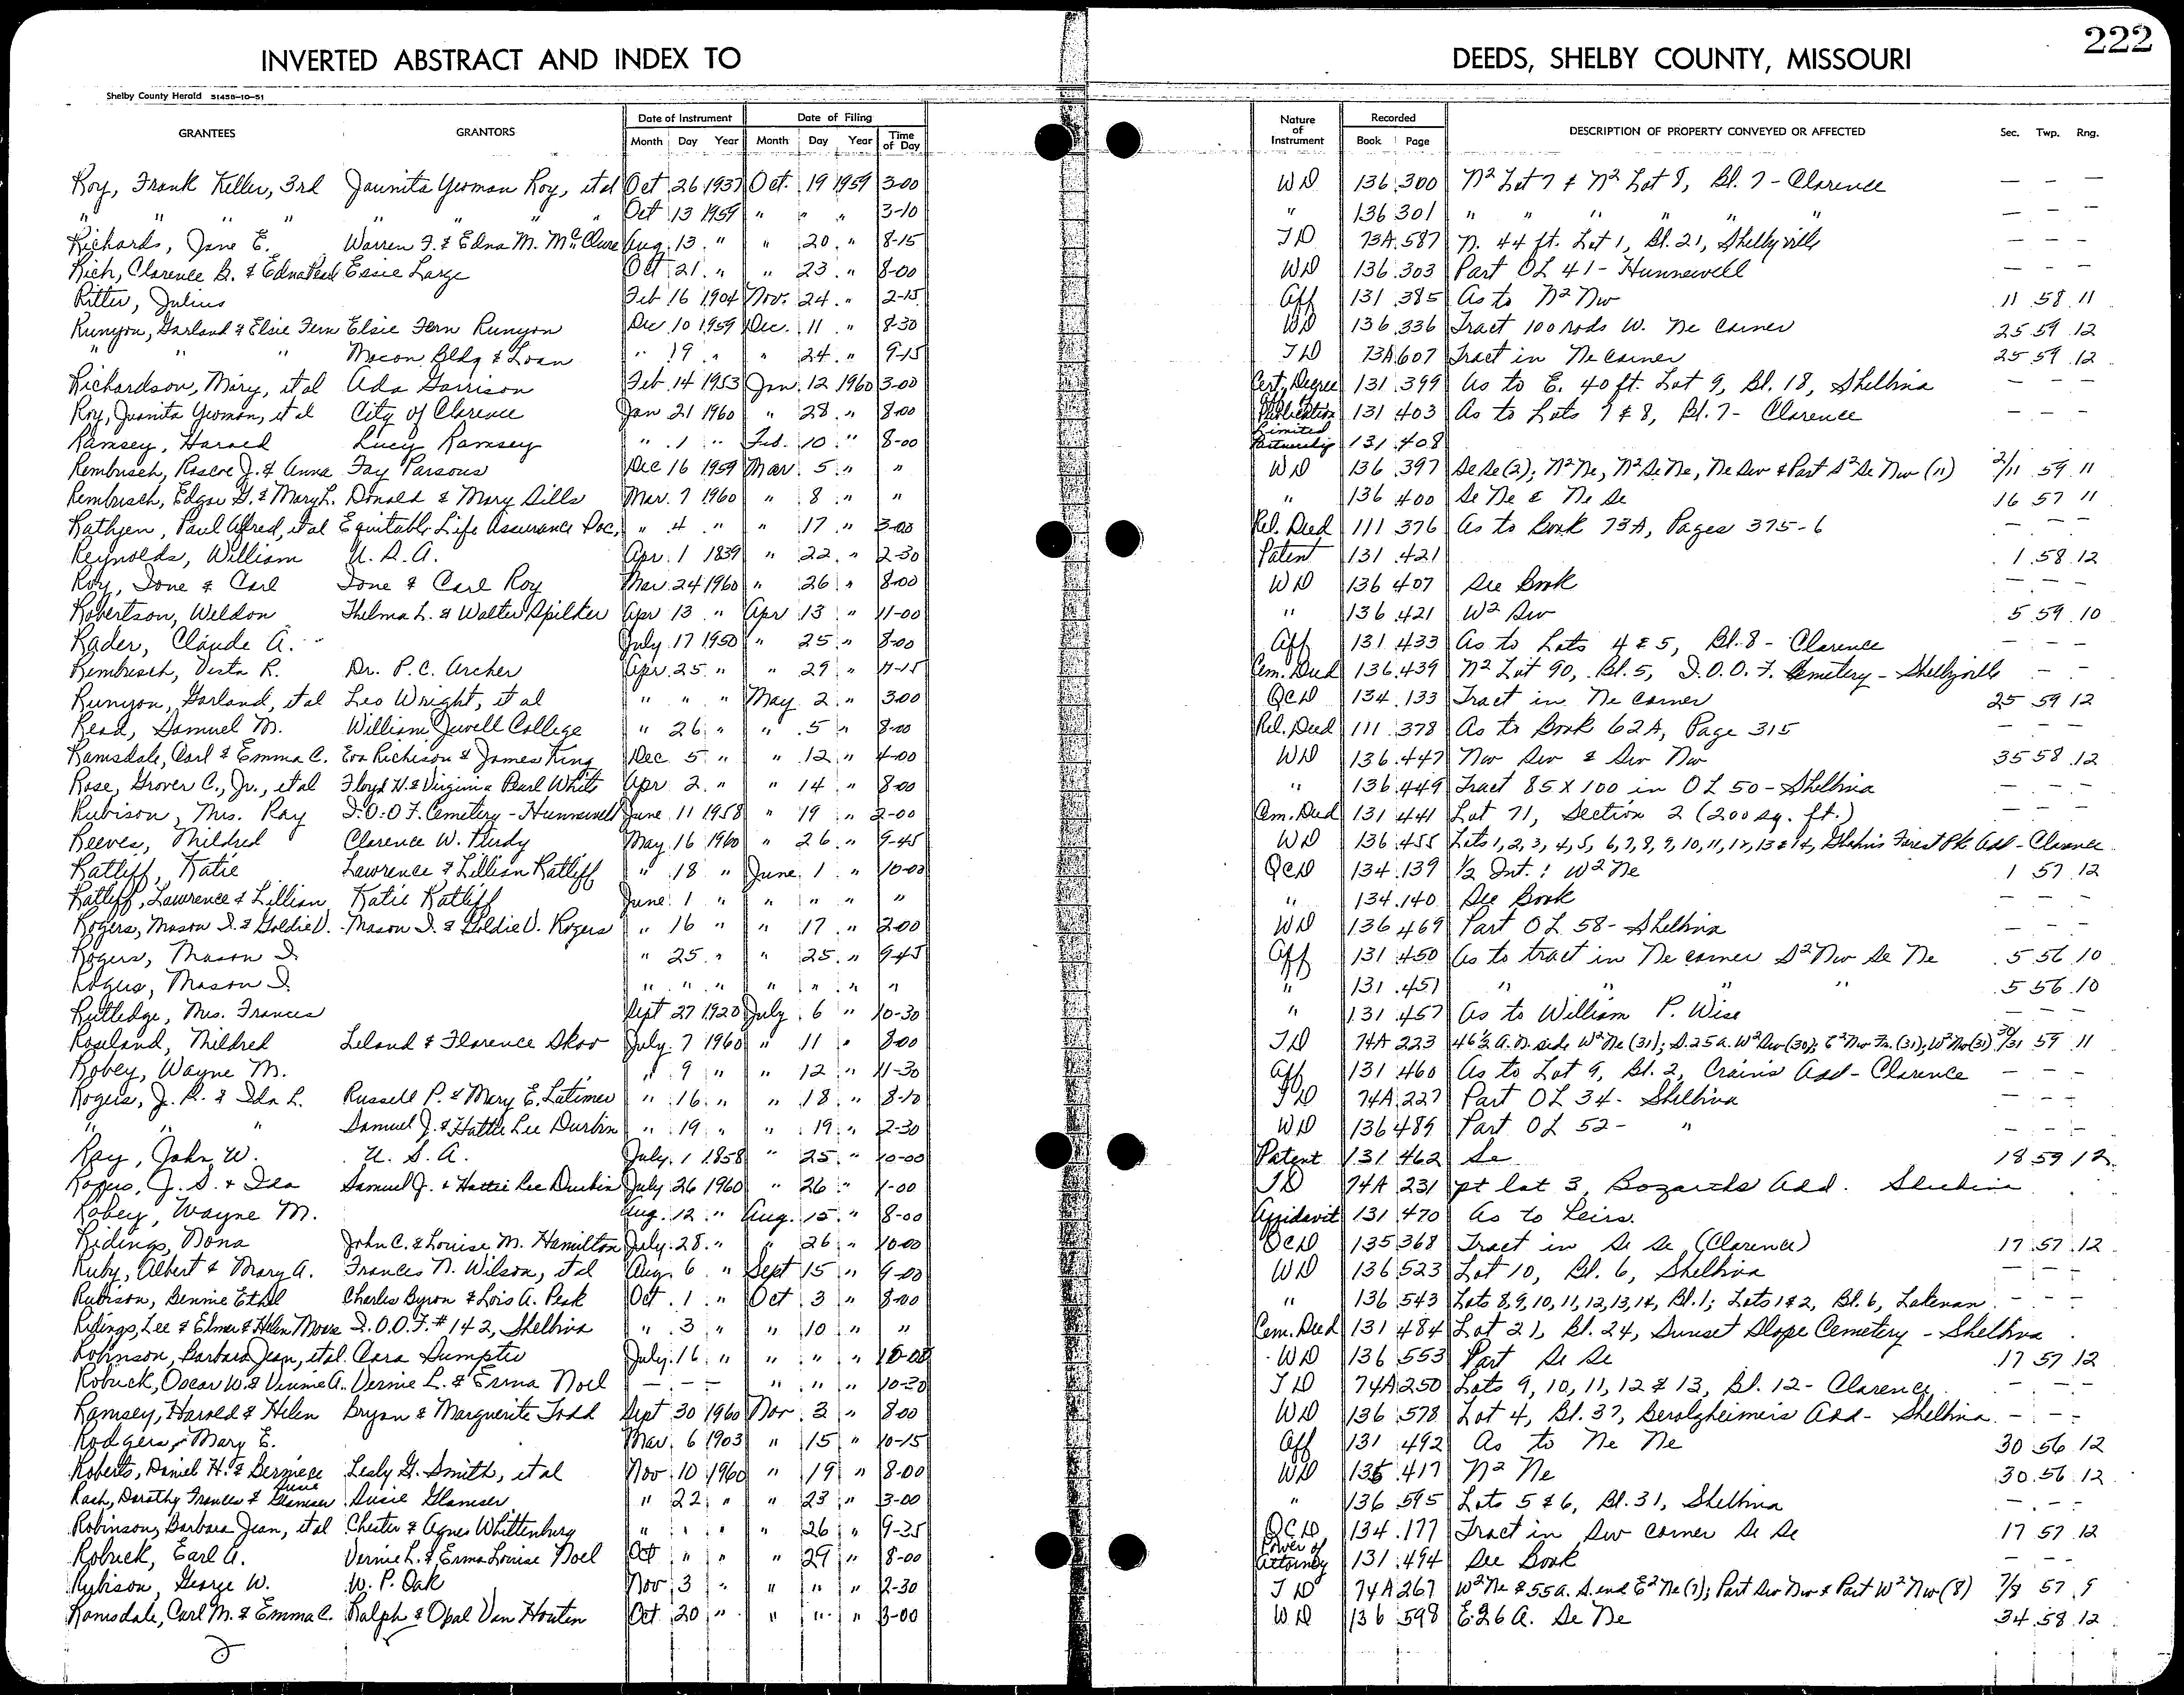 222
INVERTED ABSTRACT AND INDEX TO DEEDS, SHELBY COUNTY, MISSOURI
Shelby County Herald 51458-10-51
GRANTEES GRANTORS Date of Instrument Month Day Year Date of Filing Month Day Year Time of Day Nature of Instrument Recorded Book Page DESCRIPTION OF PROPERTY CONVEYED OR AFFECTED Sec. Twp. Rng.
Roy, Frank Keller, 3rd Jaunita Yeoman Roy, et al Oct 26 1937 Oct. 19 1959 3-00 WD 136 300 N2 Lot 7 & N2 Lot 8, Bl. 7 - Clarence — — —
" " " " " " " " Oct 13 1959 " " " 3-10 " 136 301 " " " " " " — — —
Richards, Jane E. Warren F. & Edna M. McClure Aug. 13 " " 20 " 8-15 TD 73A 587 N. 44 ft. Lot 1, Bl. 21, Shelbyville — — —
Rich, Clarence B. & Edna Pearl Essie Large Oct 21 " " 23 " 8-00 WD 136 303 Part OL 41 - Hunnewell — — —
Ritter, Julius Feb 16 1904 Nov. 24 " 2-15 Aff 131 385 As to N2 Nw 11 58 11
Runyon, Garland & Elsie Fern Elsie Fern Runyon Dec 10 1959 Dec. 11 " 8-30 WD 136 336 Tract 100 rods W. Ne Corner 25 59 12
" " " Macon Bldg & Loan " 19 " " 24 " 9-15 TD 73A 607 Tract in Ne Corner 25 59 12
Richardson, Mary, et al Ada Garrison Feb. 14 1953 Jan 12 1960 3-00 Cert. Degree 131 399 As to E. 40 ft. Lot 9, Bl. 18, Shelbina — — —
Roy, Juanita Yeoman, et al City of Clarence Jan 21 1960 " 28 " 8-00 Aff of Publication 131 403 As to Lots 7 & 8, Bl. 7 - Clarence — — —
Ramsey, Harold Lucy Ramsey " 1 " Feb. 10 " 8-00 Limited Partnership 131 408
Rembusch, Roscoe J. & Anna Fay Parsons Dec 16 1959 Mar. 5 " " WD 136 397 Se Se (2); N2 Ne, N2 Se Ne, Ne Sw & Part S2 Se Nw (11) 2/11 59 11
Rembusch, Edgar G. & Mary L. Donald & Mary Sills Mar. 7 1960 " 8 " " " 136 400 Se Ne & Ne Se 16 57 11
Rathjen, Paul Alfred, et al Equitable Life Assurance Soc, " 4 " " 17 " 3-00 Rel. Deed 111 376 As to Book 73A, Pages 375-6 — — —
Reynolds, William U. S. A. Apr. 1 1839 " 22 " 2-30 Patent 131 421 1 58 12
Roy, Ione & Carl Ione & Carl Roy Mar 24 1960 " 26 " 8-00 WD 136 407 See Book — — —
Robertson, Weldon Thelma L. & Walter Spilker Apr 13 " Apr 13 " 11-00 " 136 421 W2 Sw 5 59 10
Rader, Claude A. July 17 1950 " 25 " 8-00 Aff 131 433 As to Lots 4 & 5, Bl. 8 - Clarence — — —
Rembusch, Vesta R. Dr. P. C. Archer Apr. 25 " " 29 " 11-15 Cem. Deed 136 439 N2 Lot 90, Bl. 5, I.O.O.F. Cemetery - Shelbyville — —
Runyon, Garland, et al Leo Wright, et al " " " May 2 " 3-00 QCD 134 133 Tract in Ne Corner 25 59 12
Read, Samuel M. William Jewell College " 26 " " 5 " 8-00 Rel. Deed 111 378 As to Book 62A, Page 315 — — —
Ramsdale, Carl & Emma C. Eva Richeson & James King Dec 5 " " 12 " 4-00 WD 136 447 Nw Sw & Sw Nw 35 58 12
Rose, Grover C., Jr., et al Floyd H. & Virginia Pearl White Apr 2 " " 14 " 8-00 " 136 449 Tract 85 X 100 in OL 50 - Shelbina — — —
Rubison, Mrs. Ray I.O.O.F. Cemetery - Hunnewell June 11 1958 " 19 " 2-00 Cem. Deed 131 441 Lot 71, Section 2 (200 sq. ft.) — — —
Reeves, Mildred Clarence W. Purdy May 16 1960 " 26 " 9-45 WD 136 455 Lots 1, 2, 3, 4, 5, 6, 7, 8, 9, 10, 11, 12, 13 & 14, Forest Pk Add - Clarence
Ratliff, Katie Lawrence & Lillian Ratliff " 18 " June 1 " 10-00 QCD 134 139 1/2 Int.: W2 Ne 1 57 12
Ratliff, Lawrence & Lillian Katie Ratliff June 1 " " " " " " 134 140 See Book — — —
Rogers, Mason I. & Goldie V. Mason I. & Goldie V. Rogers " 16 " " 17 " 2-00 WD 136 469 Part OL 58 - Shelbina — — —
Rogers, Mason I. " 25 " " 25 " 9-45 Aff 131 450 As to tract in Ne corner S2 Nw Se Ne 5 56 10
Rogers, Mason I. " " " " " " " " 131 451 " " " 5 56 10
Rutledge, Mrs. Frances Sept 27 1920 July 6 " 10-30 " 131 457 As to William P. Wise — — —
Rowland, Mildred Leland & Florence Skov July 7 1960 " 11 " 8-00 TD 74A 223 46 1/2 A. N. side W2 Ne (31); S. 25 A. W2 Sw (30); E2 Nw Fr. (31); W2 Nw (31) 30/31 59 11
Robey, Wayne M. " 9 " " 12 " 11-30 Aff 131 460 As to Lot 9, Bl. 2, Crains Add - Clarence — — —
Rogers, J. R. & Ida L. Russell P. & Mary E. Latimer " 16 " " 18 " 8-10 TD 74A 227 Part OL 34 - Shelbina — — —
" " " Samuel J. & Hattie Lee Durbin " 19 " " 19 " 2-30 WD 136 489 Part OL 52 - " — — —
Ray, John W. U. S. A. July 1 1858 " 25 " 10-00 Patent 131 462 Se 18 59 12
Rogers, J. S. & Ida Samuel J. & Hattie Lee Durbin July 26 1960 " 26 " 1-00 TD 74A 231 pt lot 3, Bozarths Add. Shelbina
Robey, Wayne M. Aug. 12 " Aug. 15 " 8-00 Affidavit 131 470 As to heirs.
Ridings, Nona John C. & Louise M. Hamilton July 28 " " 26 " 10-00 QCD 135 368 Tract in Se Se (Clarence) 17 57 12
Ruby, Albert & Mary A. Frances N. Wilson, et al Aug. 6 " Sept 15 " 9-00 WD 136 523 Lot 10, Bl. 6, Shelbina — — —
Rubison, Bennie Ethel Charles Byron & Lois A. Peak Oct. 1 " Oct 3 " 8-00 " 136 543 Lots 8, 9, 10, 11, 12, 13, 14, Bl. 1; Lots 1 & 2, Bl. 6, Lakenan — — —
Ridings, Lee & Elmer & Helen Moore I.O.O.F. #142, Shelbina " 3 " " 10 " " Cem. Deed 131 484 Lot 21, Bl. 24, Sunset Slope Cemetery - Shelbina
Robinson, Barbara Jean, et al. Cara Sumpter July 16 " " " " 10-00 WD 136 553 Part Se Se 17 57 12
Robuck, Oscar W. & Vinnie A. Vernie L. & Erma Noel — — — " " " 10-30 TD 74A 250 Lots 9, 10, 11, 12 & 13, Bl. 12 - Clarence — — —
Ramsey, Harold & Helen Bryan & Marguerite Todd Sept 30 1960 Nov. 3 " 8-00 WD 136 578 Lot 4, Bl. 37, Berolzheimers Add - Shelbina — — —
Rodgers, Mary E. Mar. 6 1903 " 15 " 10-15 Aff 131 492 As to Ne Ne 30 56 12
Roberts, Daniel H. & Berniece Lesly G. Smith, et al Nov 10 1960 " 19 " 8-00 WD 135 417 N2 Ne 30 56 12
Rash, Dorothy Frances & June Glamser Susie Glamser " 22 " " 23 " 3-00 " 136 595 Lots 5 & 6, Bl. 31, Shelbina — — —
Robinson, Barbara Jean, et al Chester & Agnes Whittenburg " " " " 26 " 9-35 QCD 134 177 Tract in Sw corner Se Se 17 57 12
Robuck, Earl A. Vernie L. & Erma Louise Noel Oct " " " 29 " 8-00 Power of Attorney 131 494 See Book — — —
Rubison, George W. W. P. Oak Nov 3 " " " " 2-30 TD 74A 267 W2 Ne & 55 a. S. end E2 Ne (7); Part Sw Nw & Part W2 Nw (8) 7/8 57 9
Ramsdale, Carl M. & Emma C. Ralph & Opal Van Houten Oct 20 " " " " 3-00 WD 136 598 E. 26 A. Se Ne 34 58 12